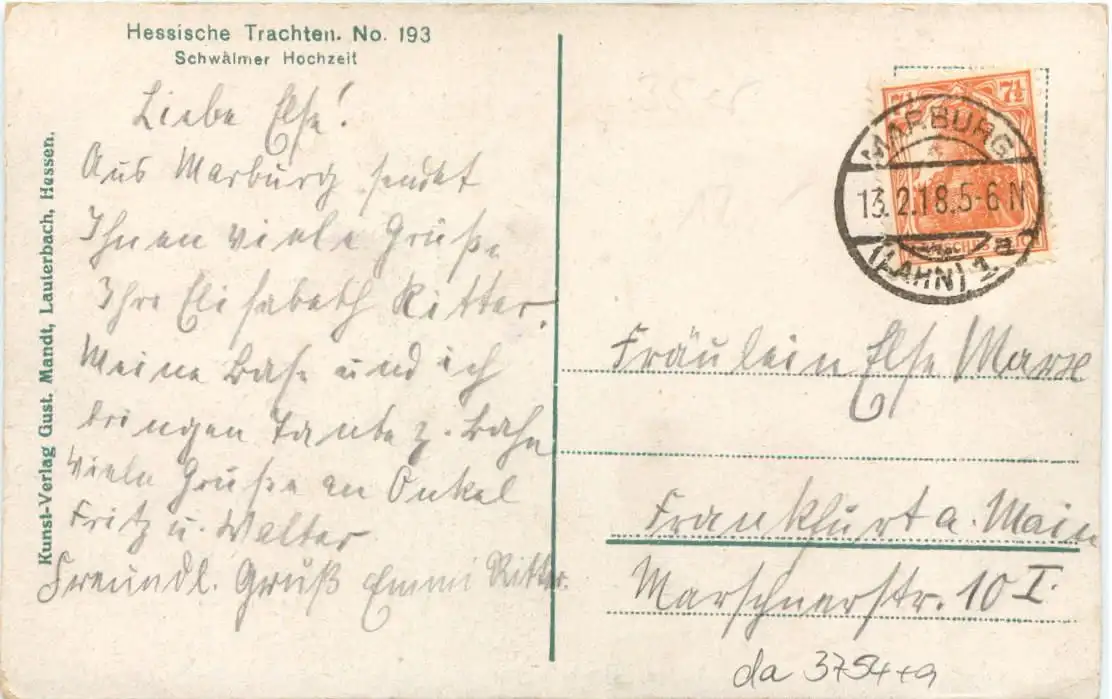 Hessische Trachten. No. 193
Schwälmer Hochzeit
Liebe Else!
Aus Marburg sendet
Ihnen viele Grüße
Ihre Elisabeth Ritter.
Meine Base und ich
bringen Tante z. Bahn
Viele Grüße an Onkel
Fritz u. Walter
Freundl. Gruß Emmi Ritter.
Kunst-Verlag Gust. Mandt, Lauterbach, Hessen.
7½ 7½
MARBURG
13.2.18.5-6N
(LAHN) 1 a
Fräulein Else Marx
Frankfurt a. Main
Marschnerstr. 10 I.
da 3754+a